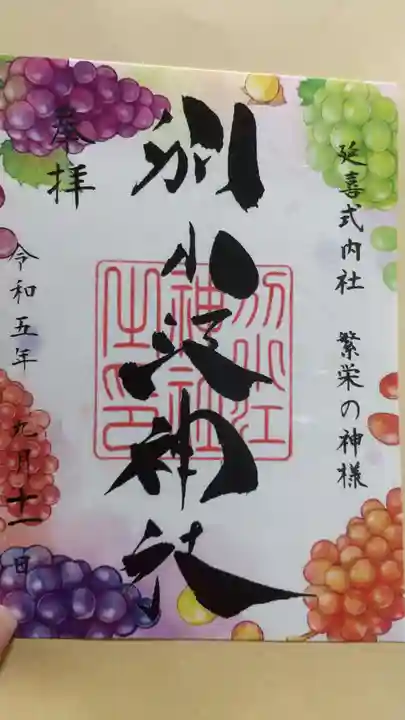 延喜式内社 繁栄の神様
別小江神社
別小江
神社
之印
奉拝
令和五年 九月十一日